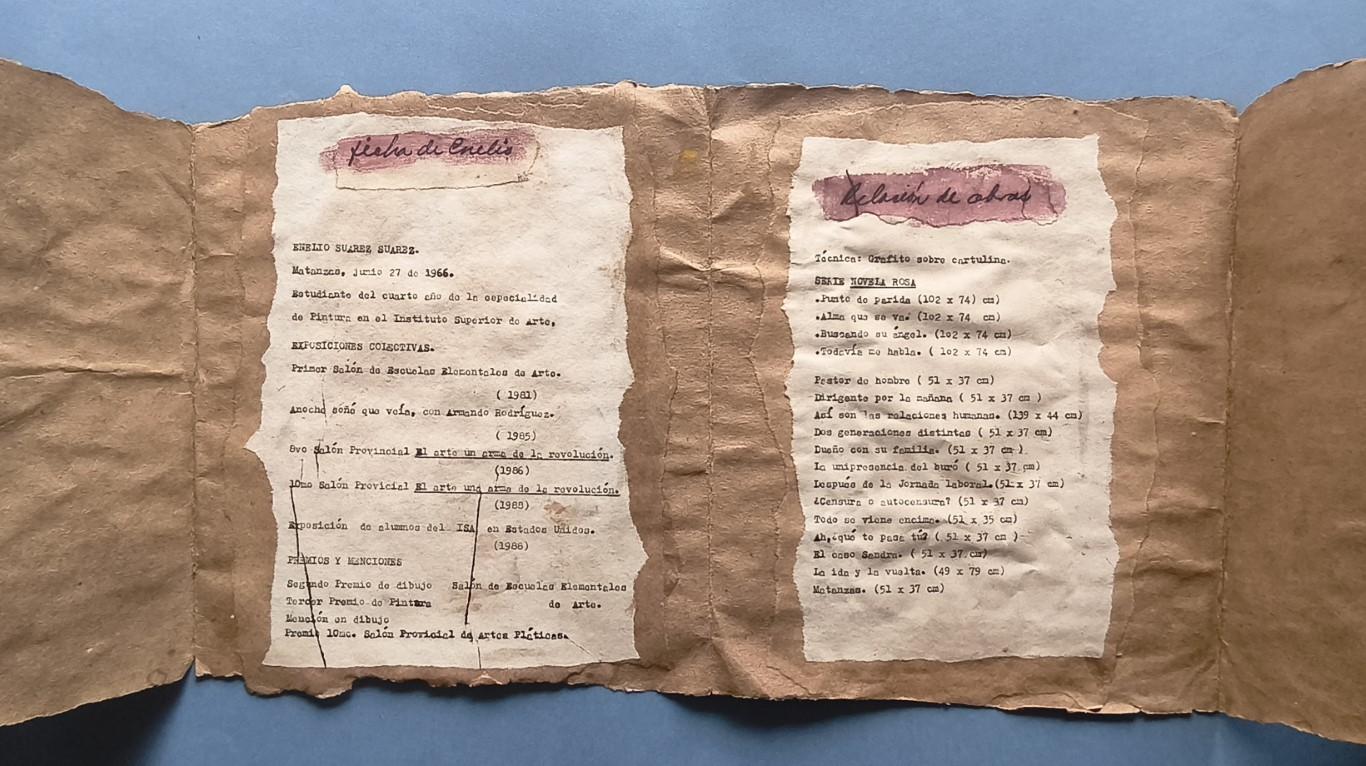 ficha de Enelio
ENELIO SUAREZ SUAREZ.
Matanzas, junio 27 de 1966.
Estudiante del cuarto año de la especialidad
de Pintura en el Instituto Superior de Arte,
EXPOSICIONES COLECTIVAS.
Primer Salón de Escuelas Elementales de Arte.
( 1981)
Anoche soñé que veía, con Armando Rodríguez.
( 1985)
8vo Salón Provincial El arte un arma de la revolución.
(1986)
10mo Salón Provicial El arte una arma de la revolución.
(1988)
Exposición de alumnos del ISA en Estados Unidos.
(1988)
PREMIOS Y MENCIONES
Segundo Premio de dibujo Salón de Escuelas Elementales
Tercer Premio de Pintura de Arte.
Mención en dibujo
Premio 10mo. Salón Provicial de Artes Pláticas.
Relasión de obras
Técnica: Grafito sobre cartulina.
SERIE NOVELA ROSA
.Punto de parida (102 x 74) cm)
.Alma que se va. (102 x 74 cm)
.Buscando su ángel. (102 x 74 cm)
.Todavía me habla. ( 102 x 74 cm)
Pastor de hombre ( 51 x 37 cm)
Dirigente por la mañana ( 51 x 37 cm )
Así son las relaciones humanas. (139 x 44 cm)
Dos generaciones distintas ( 51 x 37 cm)
Dueño con su familia. (51 x 37 cm )
La unipresencia del buró ( 51 x 37 cm)
Después de la Jornada laboral.(51 x 37 cm)
¿Censura o autocensura? (51 x 37 cm)
Todo se viene encima. (51 x 35 cm)
Ah,¿qué te pasa tú? ( 51 x 37 cm )
El caso Sandra. ( 51 x 37 cm)
La ida y la vuelta. (49 x 79 cm)
Matanzas. (51 x 37 cm)